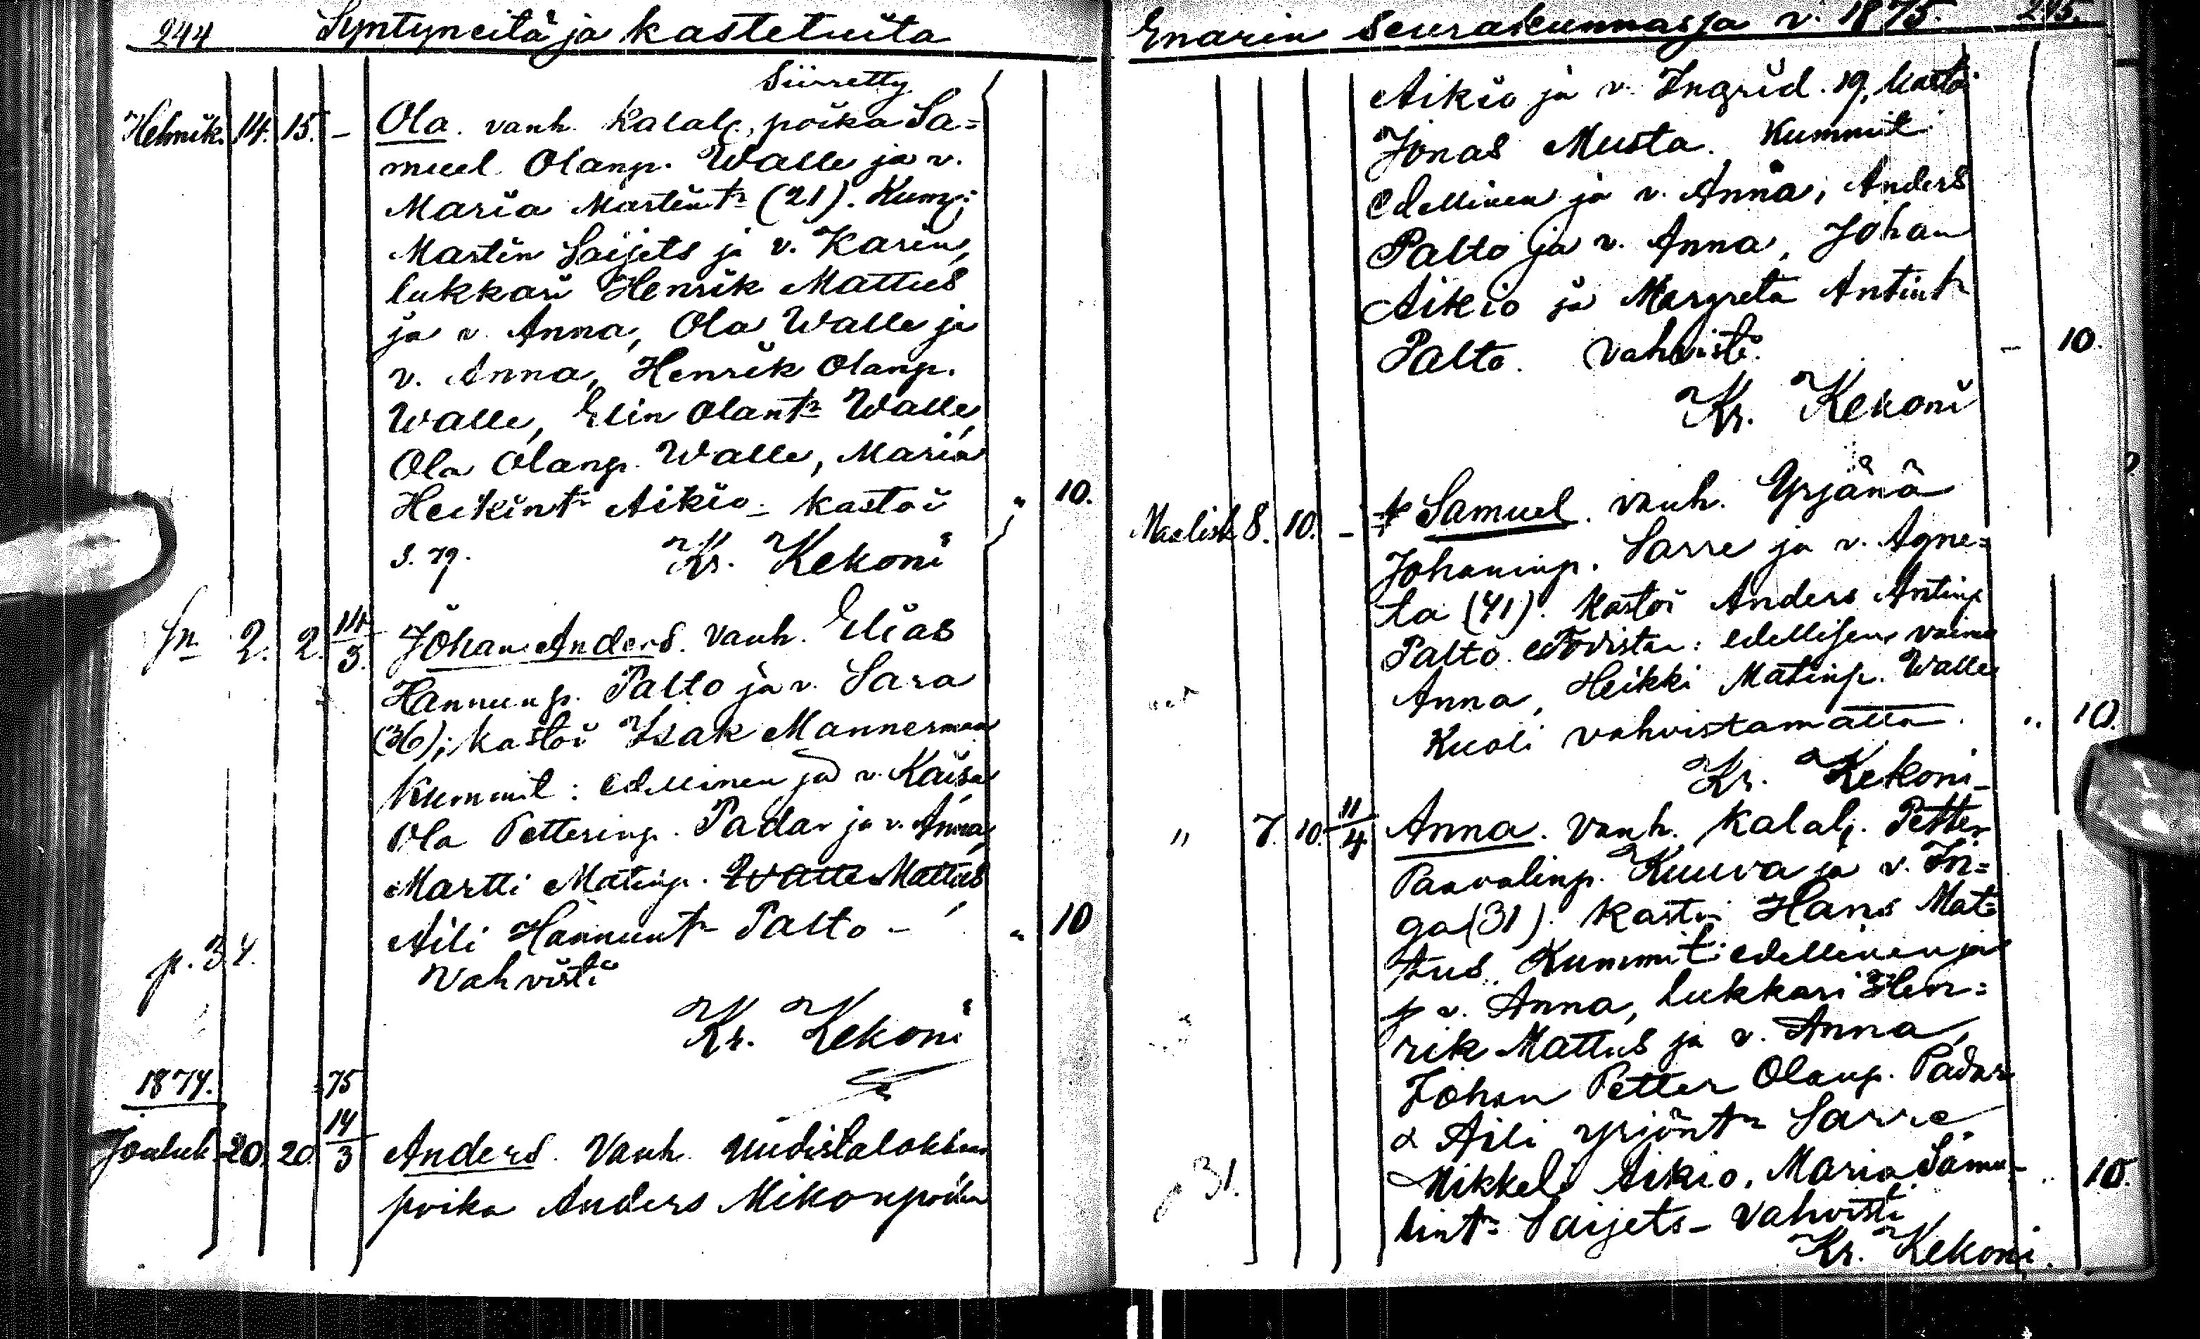 244 Syntyneitä ja kastetuita
Siirretty
Helmik. 14. 15. - Ola. vanh. kalalg. poika Sa=
muel Olanp. Walle ja v.
Maria Martint^r (21). Kum;:
Martin Saijets ja v. Karin,
lukkari Henrik Mattus
ja v. Anna, Ola Walle ja
v. Anna, Henrik Olanp.
Walle, Elin Olant^r Walle,
Ola Olanp. Walle, Maria
Heikint^r Aikio - kastoi " 10.
s. 79. Kr. Kekoni
2. 2. 14/3. Johan Anders. vanh. Elias
Hannunp. Palto ja v. Sara
(36); kastoi Isak Mannermaa
Kummit: edellinen ja v. Kaisa,
Ola Petterinp. Padar ja v. Anna,
Martti Matinp. Walle Mattus,
Aili Hannunt^r Palto - " 10
p. 34. Vahvisti
Kr. Kekoni
1874. 75
Jouluk. 20. 20. 14/3 Anders. Vanh. Uudistalokkaan
poika Anders Mikonpoika
Enarin seurakunnassa v. 1875. 245.
Aikio ja v. Ingrid. 19, kastoi
Jonas Musta. Kummit:
edellinen ja v. Anna, Anders
Palto ja v. Anna, Johan
Aikio ja Margreta Antint^r
Palto. Vahvisti. - 10.
Kr. Kekoni
Maalisk. 8. 10. - + Samuel. vanh. Yrjänä
Johaninp. Sarre ja v. Agne=
ta (41). kastoi Anders Antinp.
Palto. Todistaa: edellisen vaimo
Anna, Heikki Matinp. Walle
Kuoli vahvistamatta. " 10.
Kr. Kekoni -
" 7. 10. 11/4. Anna. vanh. kalalg. Petter
Paavalinp. Kuuva ja v. In=
ga (31). kastoi Hans Mat=
tus. Kummit: edellinen ja
v. Anna, lukkari Hen=
rik Mattus ja v. Anna,
Johan Petter Olanp. Padar
& Aili Yrjönt^r Sarre
Mikkel Aikio, Maria Samu- 10.
p 31. lint^r Saijets - Vahvisti
Kr. Kekoni.